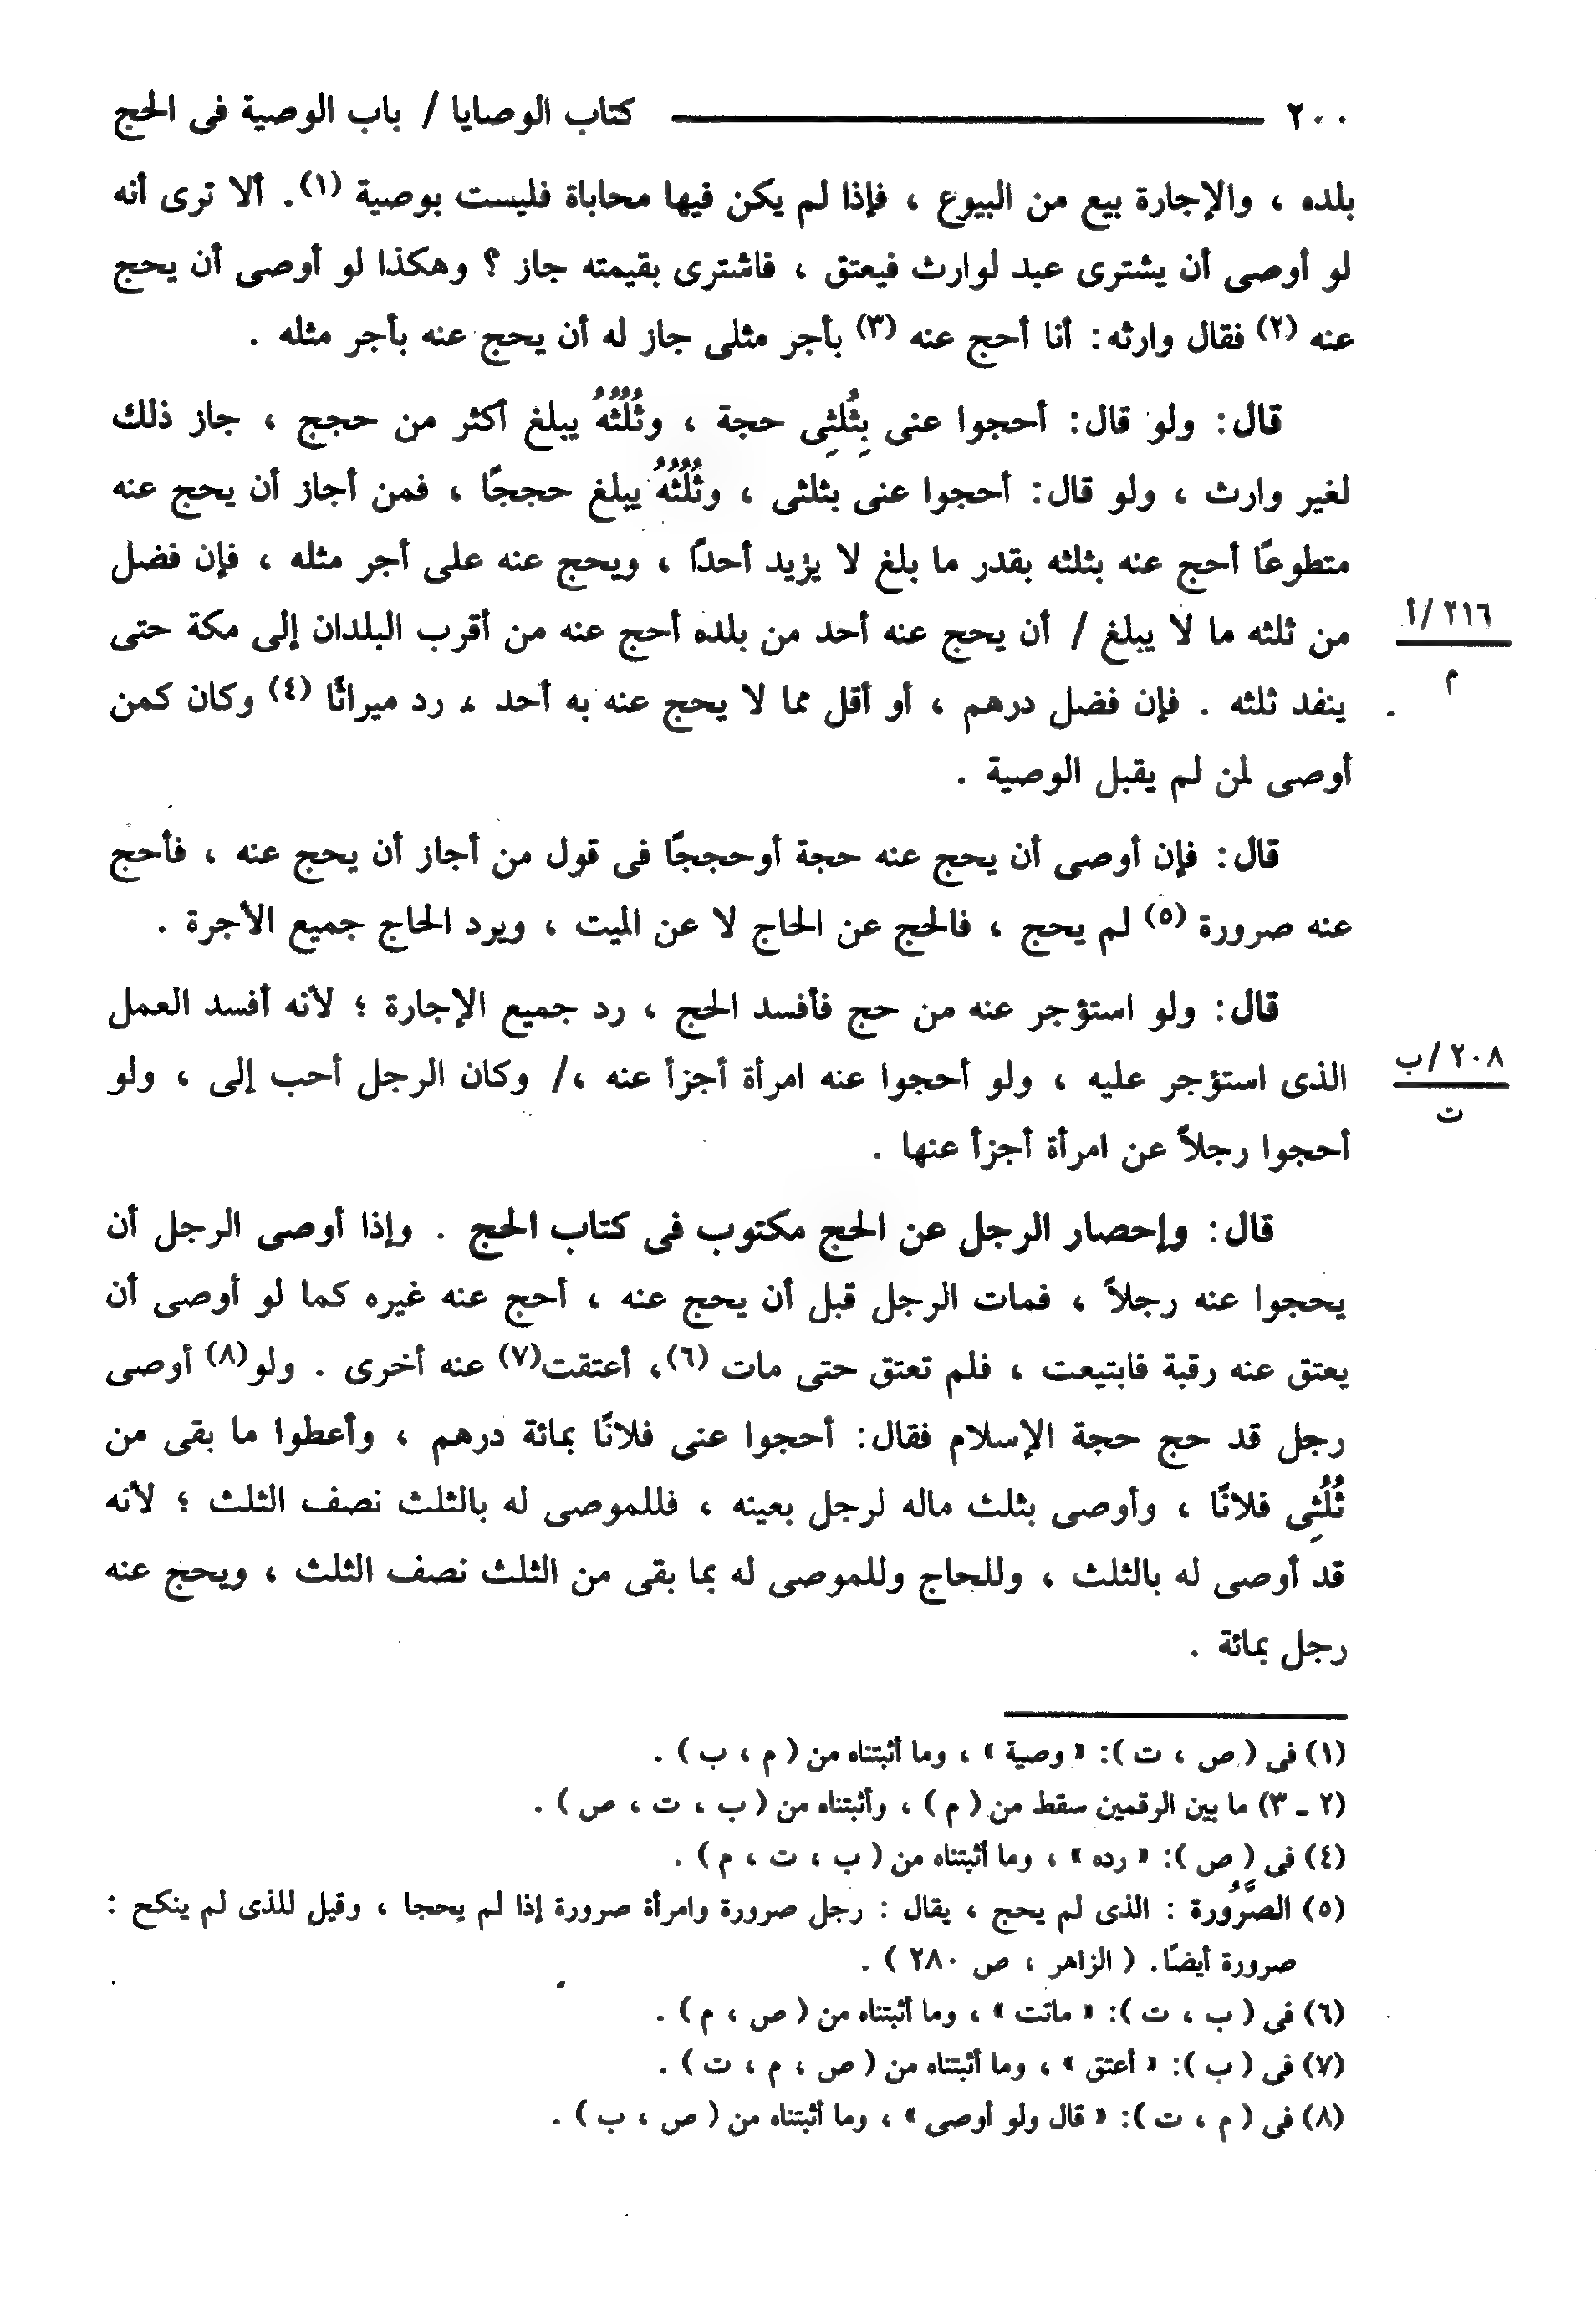 ٢٠٠ كتاب الوصايا / باب الوصية فى الحج
بلده ، والإجارة بيع من البيوع ، فإذا لم يكن فيها محاباة فليست بوصية (١). ألا ترى أنه
لو أوصى أن يشترى عبد لوارث فيعتق ، فاشترى بقيمته جاز ؟ وهكذا لو أوصى أن يحج
عنه (٢) فقال وارثه: أنا أحج عنه (٣) بأجر مثلى جاز له أن يحج عنه بأجر مثله .
قال: ولو قال: أحجوا عنى بِثُلثِى حجة ، وثُلُثُهُ يبلغ أكثر من حجج ، جاز ذلك
لغير وارث ، ولو قال: أحجوا عنى بثلثى ، وثُلُثُهُ يبلغ حججًا ، فمن أجاز أن يحج عنه
متطوعًا أحج عنه بثلثه بقدر ما بلغ لا يزيد أحدًا ، ويحج عنه على أجر مثله ، فإن فضل
من ثلثه ما لا يبلغ / أن يحج عنه أحد من بلده أحج عنه من أقرب البلدان إلى مكة حتى
٢١٦/أ
م
ينفد ثلثه . فإن فضل درهم ، أو أقل مما لا يحج عنه به أحد ، رد ميراثًا (٤) وكان كمن
أوصى لمن لم يقبل الوصية .
قال: فإن أوصى أن يحج عنه حجة أوحججًا فى قول من أجاز أن يحج عنه ، فأحج
عنه صرورة (٥) لم يحج ، فالحج عن الحاج لا عن الميت ، ويرد الحاج جميع الأجرة .
قال: ولو استؤجر عنه من حج فأفسد الحج ، رد جميع الإجارة ؛ لأنه أفسد العمل
الذى استؤجر عليه ، ولو أحجوا عنه امرأة أجزأ عنه ،/ وكان الرجل أحب إلى ، ولو
٢٠٨/ب
ت
أحجوا رجلاً عن امرأة أجزأ عنها .
قال: وإحصار الرجل عن الحج مكتوب فى كتاب الحج . وإذا أوصى الرجل أن
يحجوا عنه رجلاً ، فمات الرجل قبل أن يحج عنه ، أحج عنه غيره كما لو أوصى أن
يعتق عنه رقبة فابتيعت ، فلم تعتق حتى مات (٦)، أعتقت(٧) عنه أخرى . ولو(٨) أوصى
رجل قد حج حجة الإسلام فقال: أحجوا عنى فلانًا بمائة درهم ، وأعطوا ما بقى من
ثُلُثِى فلانًا ، وأوصى بثلث ماله لرجل بعينه ، فللموصى له بالثلث نصف الثلث ؛ لأنه
قد أوصى له بالثلث ، وللحاج وللموصى له بما بقى من الثلث نصف الثلث ، ويحج عنه
رجل بمائة .
(١) فى ( ص ، ت ): « وصية » ، وما أثبتناه من ( م ، ب ) .
(٢ ـ ٣) ما بين الرقمين سقط من ( م ) ، وأثبتناه من ( ب ، ت ، ص ) .
(٤) فى ( ص ): « رده » ، وما أثبتناه من ( ب ، ت ، م ) .
(٥) الصَّرُورة : الذى لم يحج ، يقال : رجل صرورة وامرأة صرورة إذا لم يحجا ، وقيل للذى لم ينكح :
صرورة أيضًا. ( الزاهر ، ص ٢٨٠ ) .
(٦) فى ( ب ، ت ): « ماتت » ، وما أثبتناه من ( ص ، م ) .
(٧) فى ( ب ): « أعتق » ، وما أثبتناه من ( ص ، م ، ت ) .
(٨) فى ( م ، ت ): « قال ولو أوصى » ، وما أثبتناه من ( ص ، ب ) .